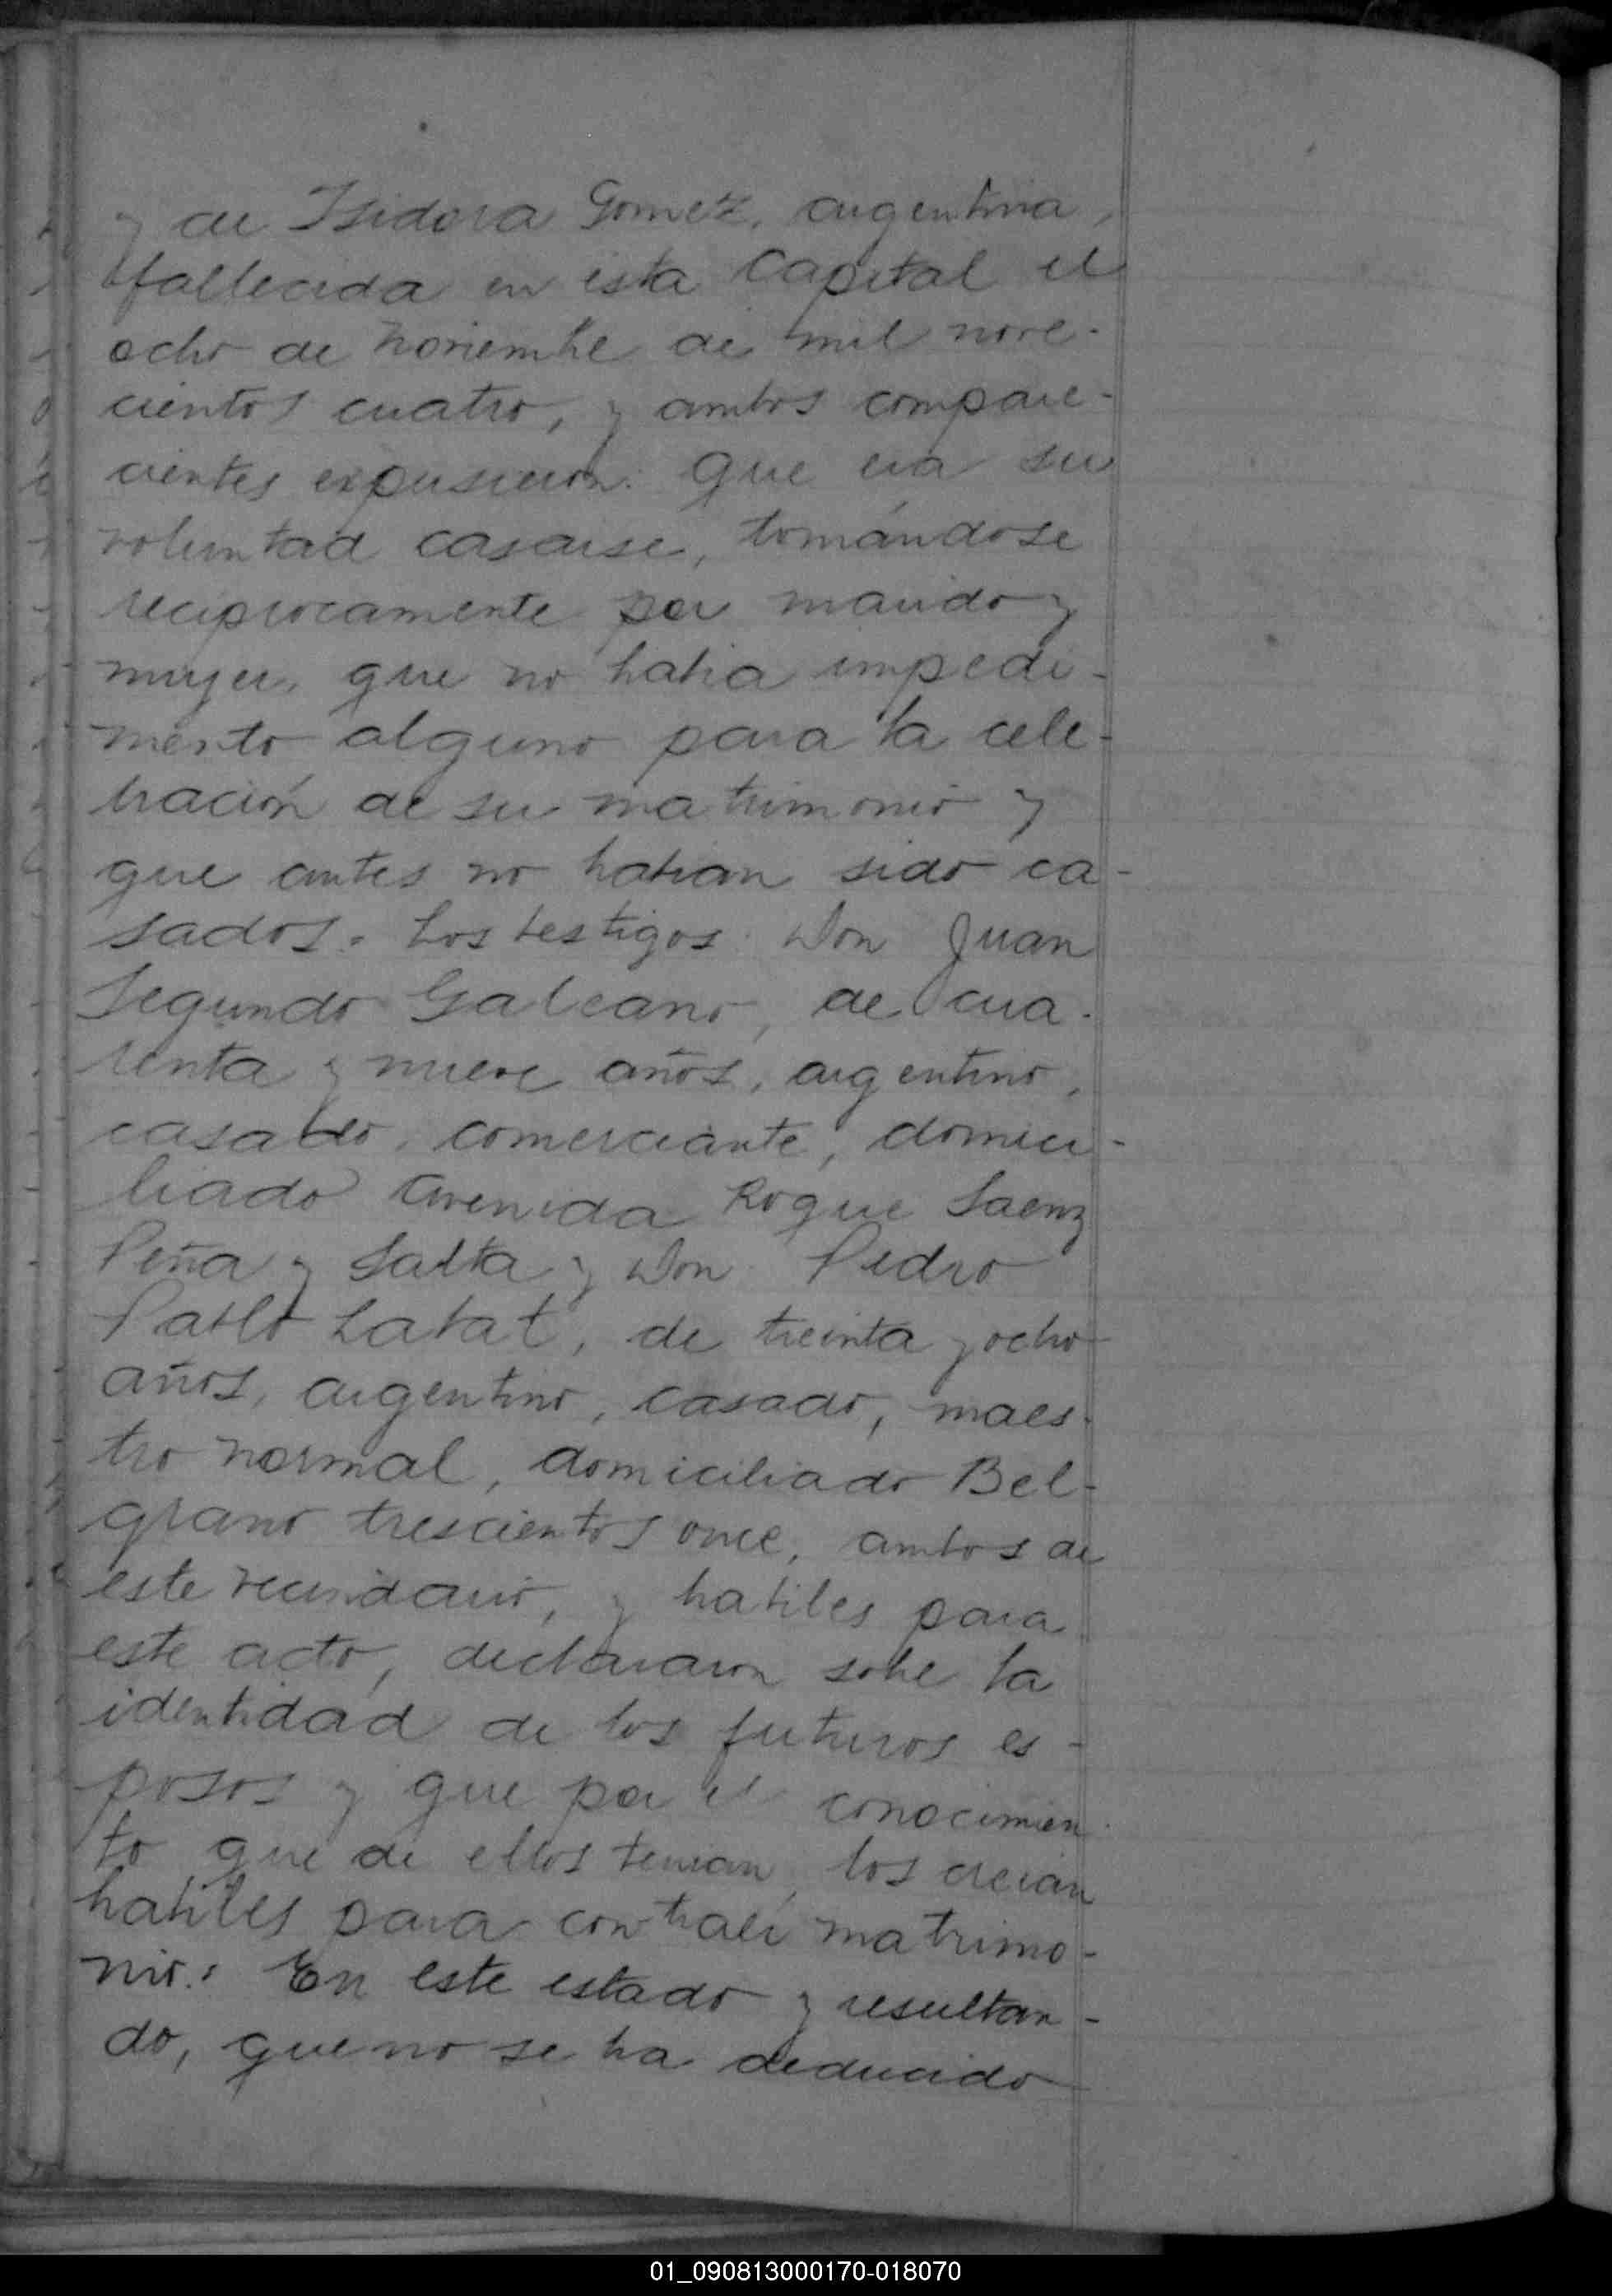 y de Isidora Gomez, argentina,
fallecida en esta Capital el
ocho de Noviembre de mil nove-
cientos cuatro, y ambos compare-
cientes expusieron: que era su
voluntad casarse, tomándose
reciprocamente por marido y
mujer, que no habia impedi-
mento alguno para la cele-
bración de su matrimonio y
que antes no habian sido ca-
sados. Los testigos Don Juan
Segundo Galeano, de cua-
renta y nueve años, argentino,
casado, comerciante, domici-
liado Avenida Roque Saenz
Peña y Salta y Don Pedro
Pablo Labat, de treinta y ocho
años, argentino, casado, maes-
tro normal, domiciliado Bel-
grano trescientos once, ambos de
este vecindario, y habiles para
este acto, declararon sobre la
identidad de los futuros es-
posos y que por el conocimien-
to que de ellos tenian, los creian
habiles para contraer matrimo-
nio. En este estado y resultan-
do, que no se ha deducido
01_090813000170-018070